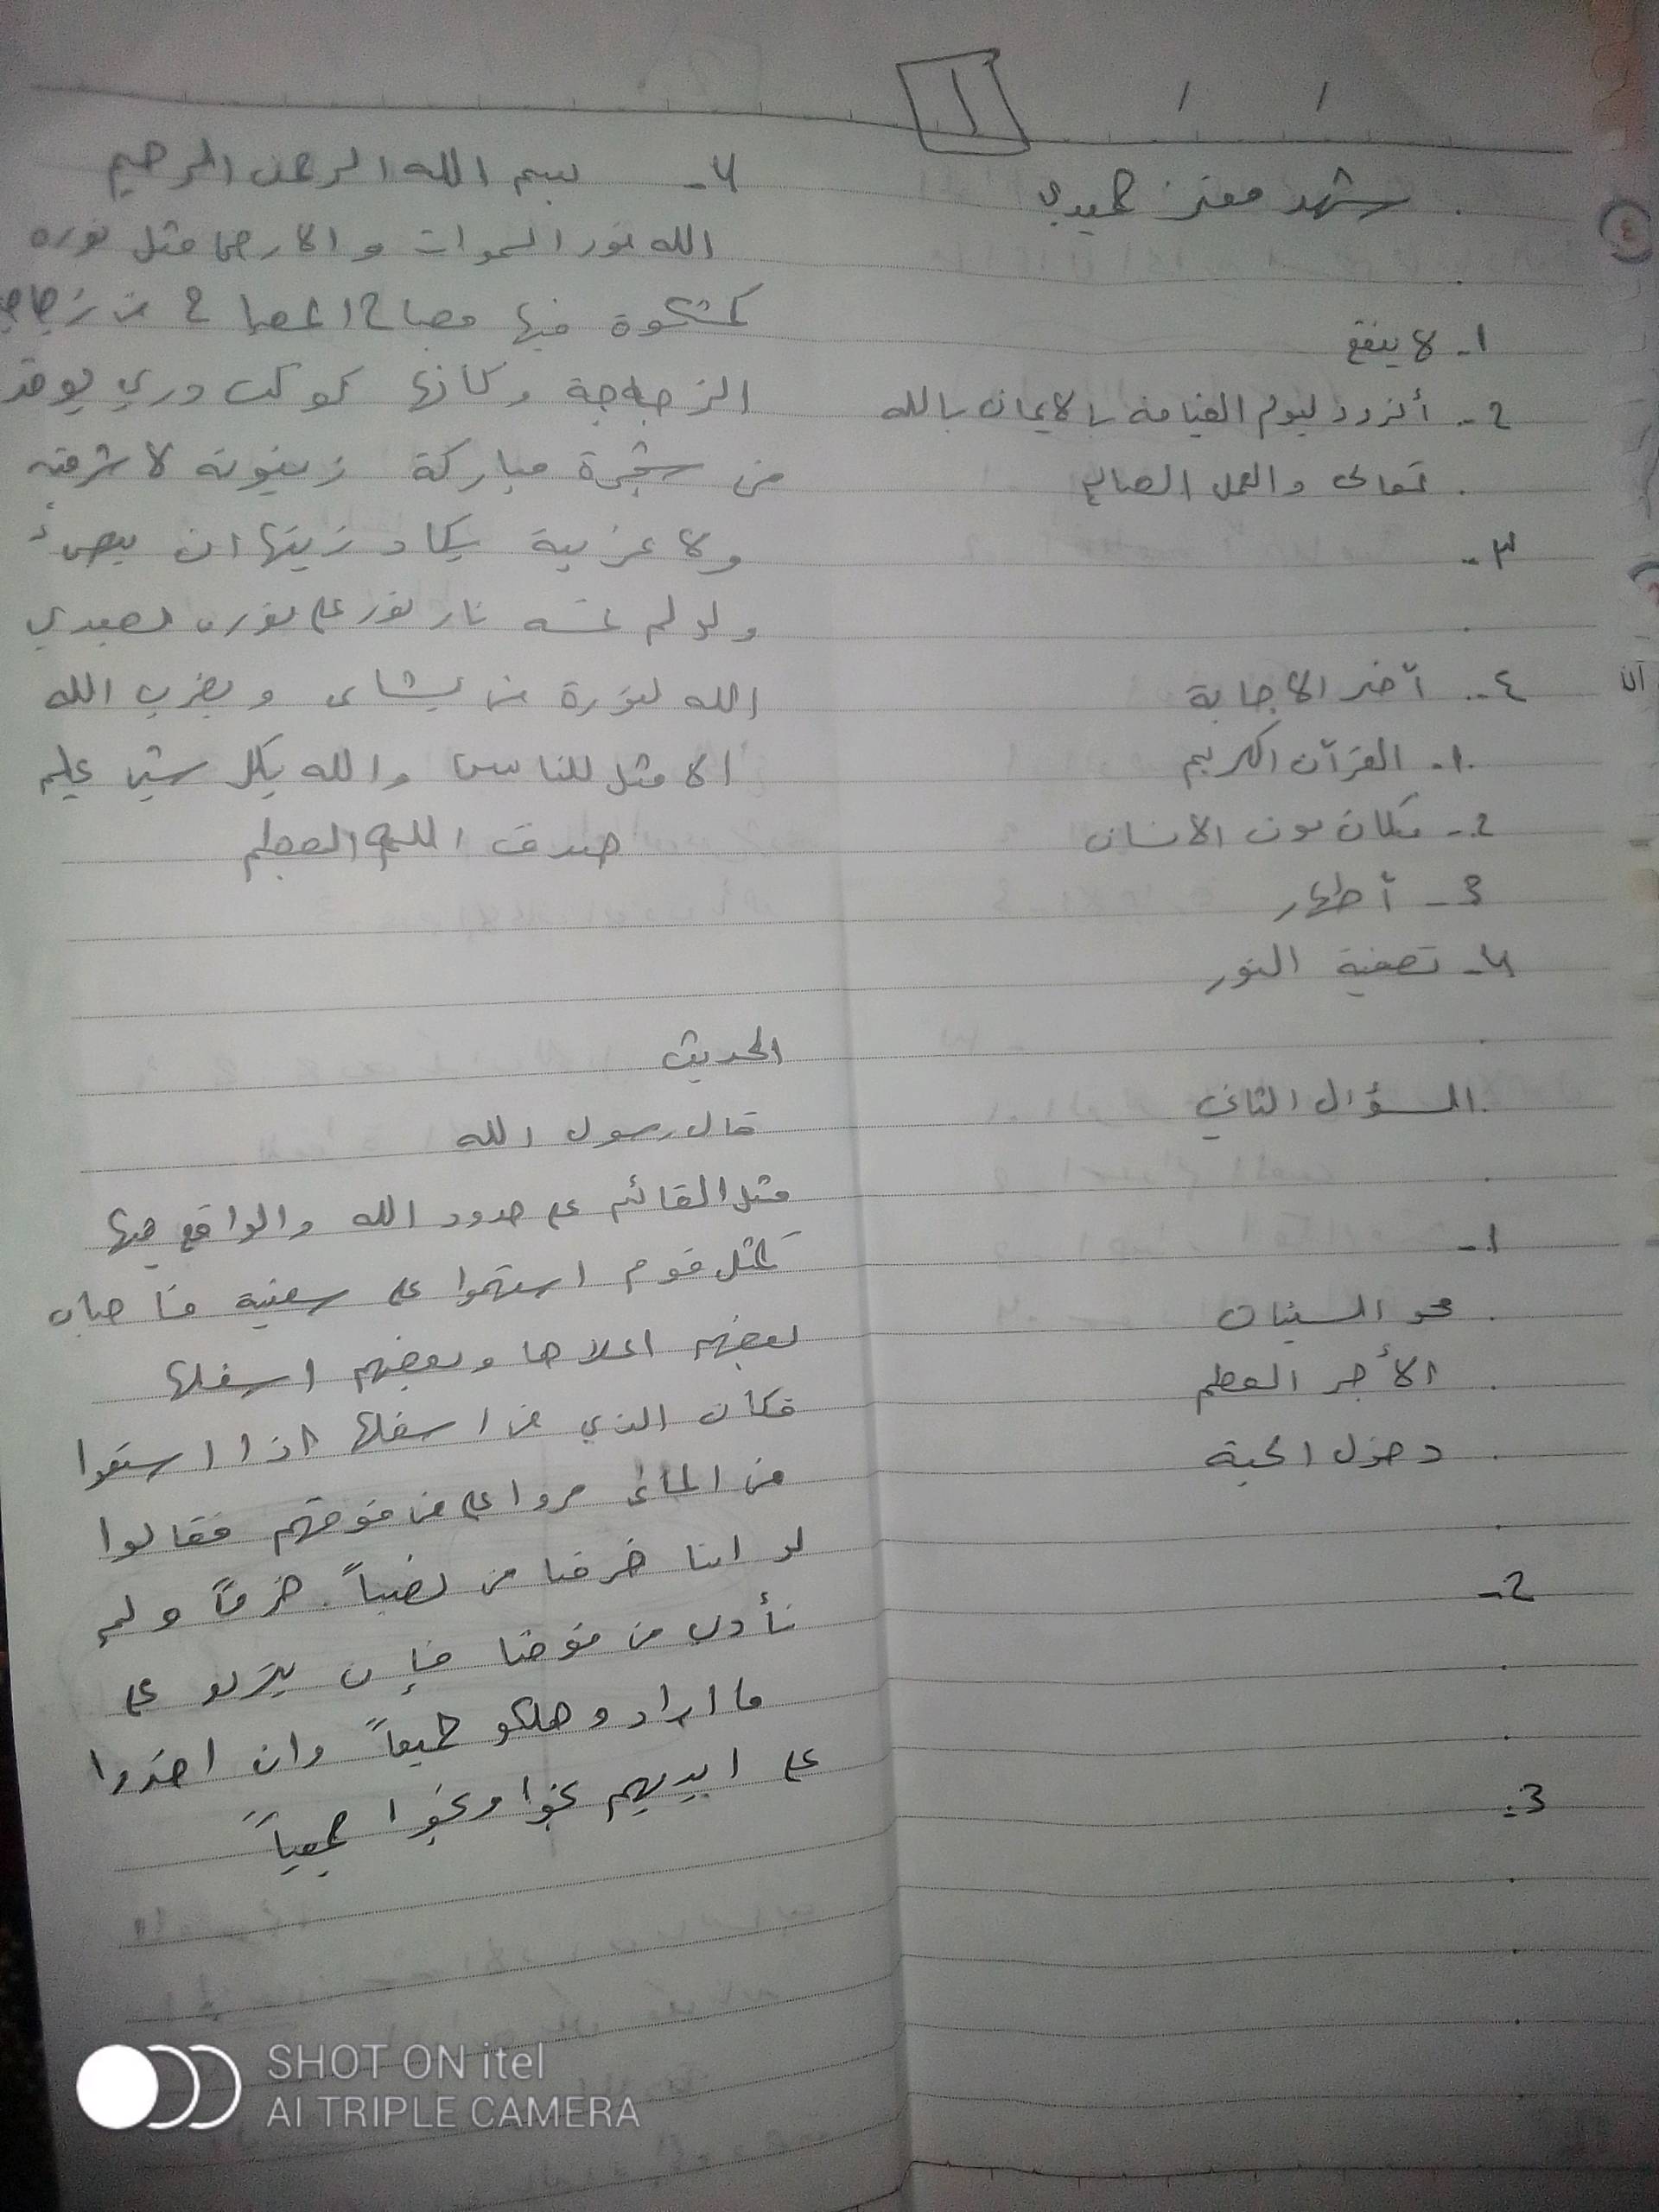 شهد معتز حميدي
1- لا ينفع
2- أتزود ليوم القيامة بالايمان بالله
تعالى والعمل الصالح
٣-
٤- أختر الاجابة
1- القرآن الكريم
2- مكان موت الانسان
3- أظهار
4- تصفية النور
السؤال الثاني
1-
محو السيئات
الأجر العظم
دخول الجنة
2-
3-
4- بسم الله الرحمن الرحيم
الله نور السموات والارض مثل نوره
كمشكوة فيها مصباح المصباح في زجاجة
الزجاجة وكانها كوكب دري يوقد
من شجرة مباركة زيتونة لا شرقية
ولا غربية يكاد زيتها ان يضيء
ولو لم تمسه نار نور على نوره
الله لنورة من يشاى ويضرب الله
الامثل للناس والله بكل شي عليم
صدق الله العظم
الحديث
قال رسول الله
مثل القائم على حدود الله والواقع فيها
كمثل قوم استهموا على سفنية فأصاب
بعضهم اعلاها وبعضهم اسفلها
فكان الذي في اسفلها اذا استقوا
من المائى مروا على من فوقهم فقالوا
لو اننا خرقنا من نصيباً خرقاً ولم
نأذى من فوقنا فإن يتركو على
ما اراد وهلكو جميعاً وان اخذوا
على ايديهم نجوا ونجوا جميعاً
SHOT ON itel
AI TRIPLE CAMERA